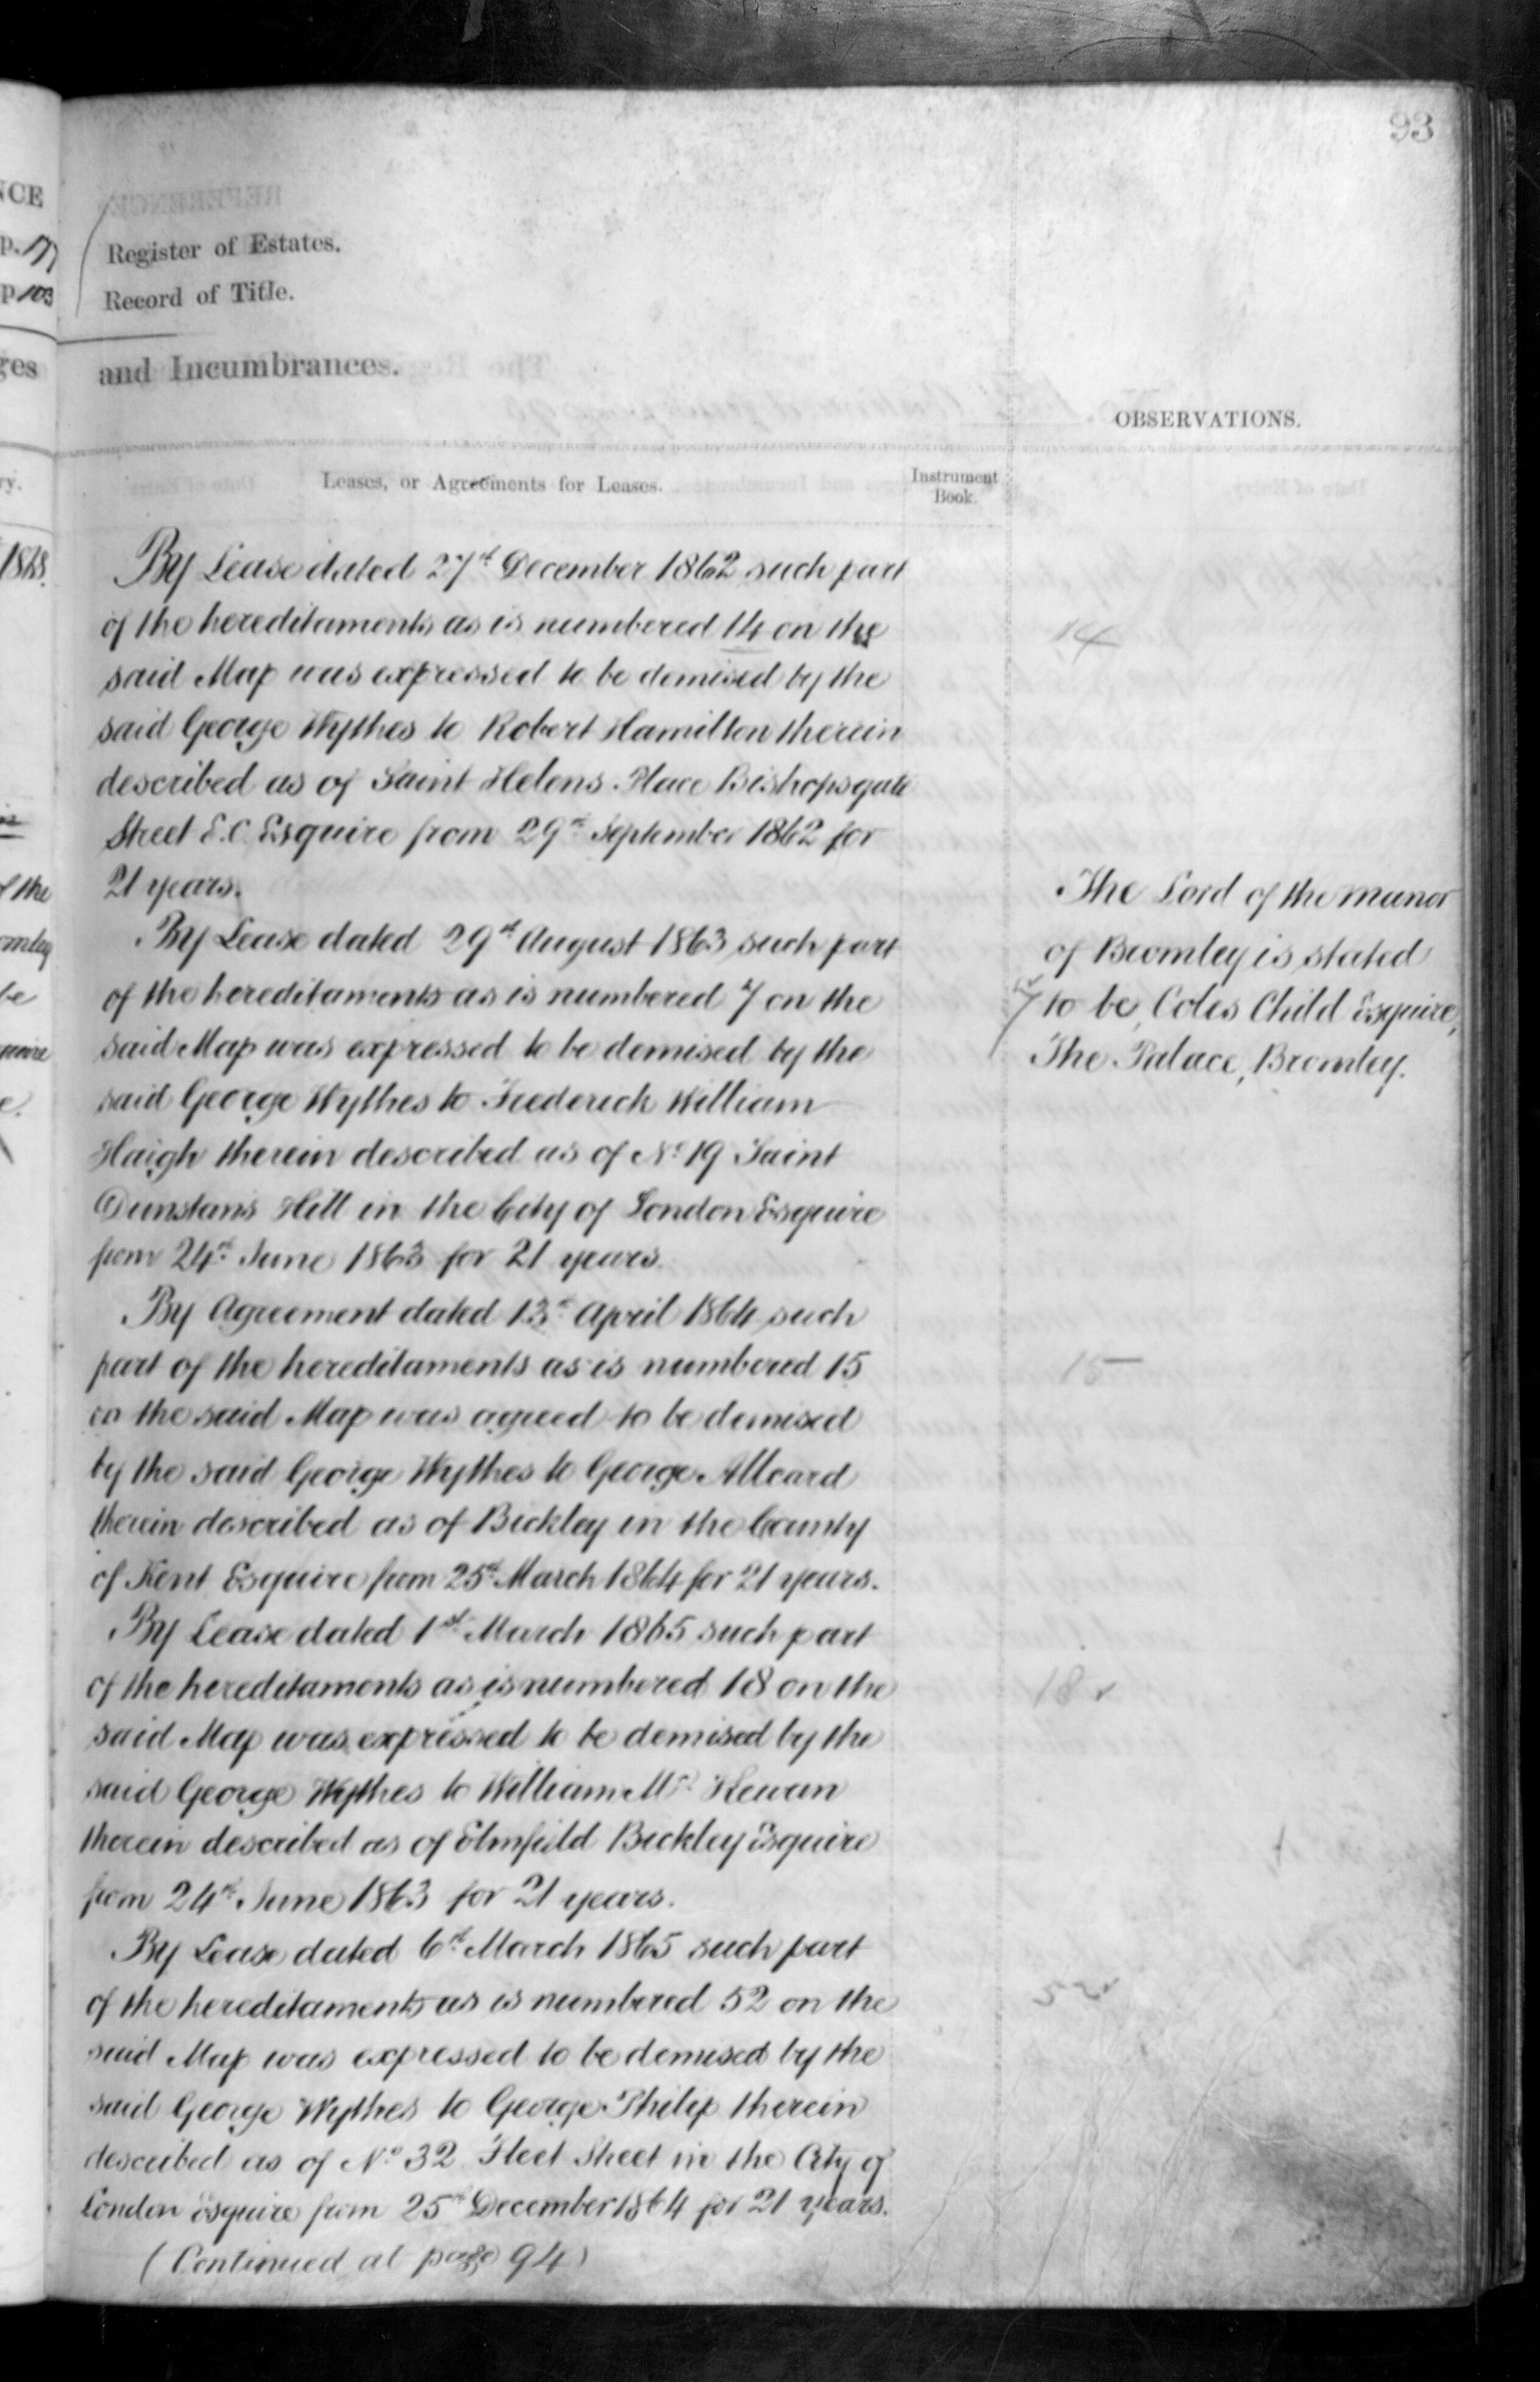 93
NCE
p. 177
p. 103
ges
ry.
1868.
of the
omley
be
quire
e.
Register of Estates.
Record of Title.
and Incumbrances.
OBSERVATIONS.
Leases, or Agreements for Leases.
Instrument
Book.
By Lease dated 27th December 1862 such part
of the hereditaments as is numbered 14 on the
said Map was expressed to be demised by the
said George Wythes to Robert Hamilton therein
described as of Saint Helens Place Bishopsgate
Street E.C. Esquire from 29th September 1862 for
21 years.
By Lease dated 29th August 1863 such part
of the hereditaments as is numbered 7 on the
said Map was expressed to be demised by the
said George Wythes to Frederick William
Haigh therein described as of No 19 Saint
Dunstan's Hill in the City of London Esquire
from 24th June 1863 for 21 years.
By Agreement dated 13th April 1864 such
part of the hereditaments as is numbered 15
on the said Map was agreed to be demised
by the said George Wythes to George Allcard
therein described as of Bickley in the County
of Kent Esquire from 25th March 1864 for 21 years.
By Lease dated 1st March 1865 such part
of the hereditaments as is numbered 18 on the
said Map was expressed to be demised by the
said George Wythes to William Mc Kewan
therein described as of Elmfield Bickley Esquire
from 24th June 1863 for 21 years.
By Lease dated 6th March 1865 such part
of the hereditaments as is numbered 52 on the
said Map was expressed to be demised by the
said George Wythes to George Philip therein
described as of No 32 Fleet Street in the City of
London Esquire from 25th December 1864 for 21 years.
(Continued at page 94)
14
The Lord of the Manor
of Bromley is stated
7 to be, Coles Child Esquire,
The Palace, Bromley.
15
18
52